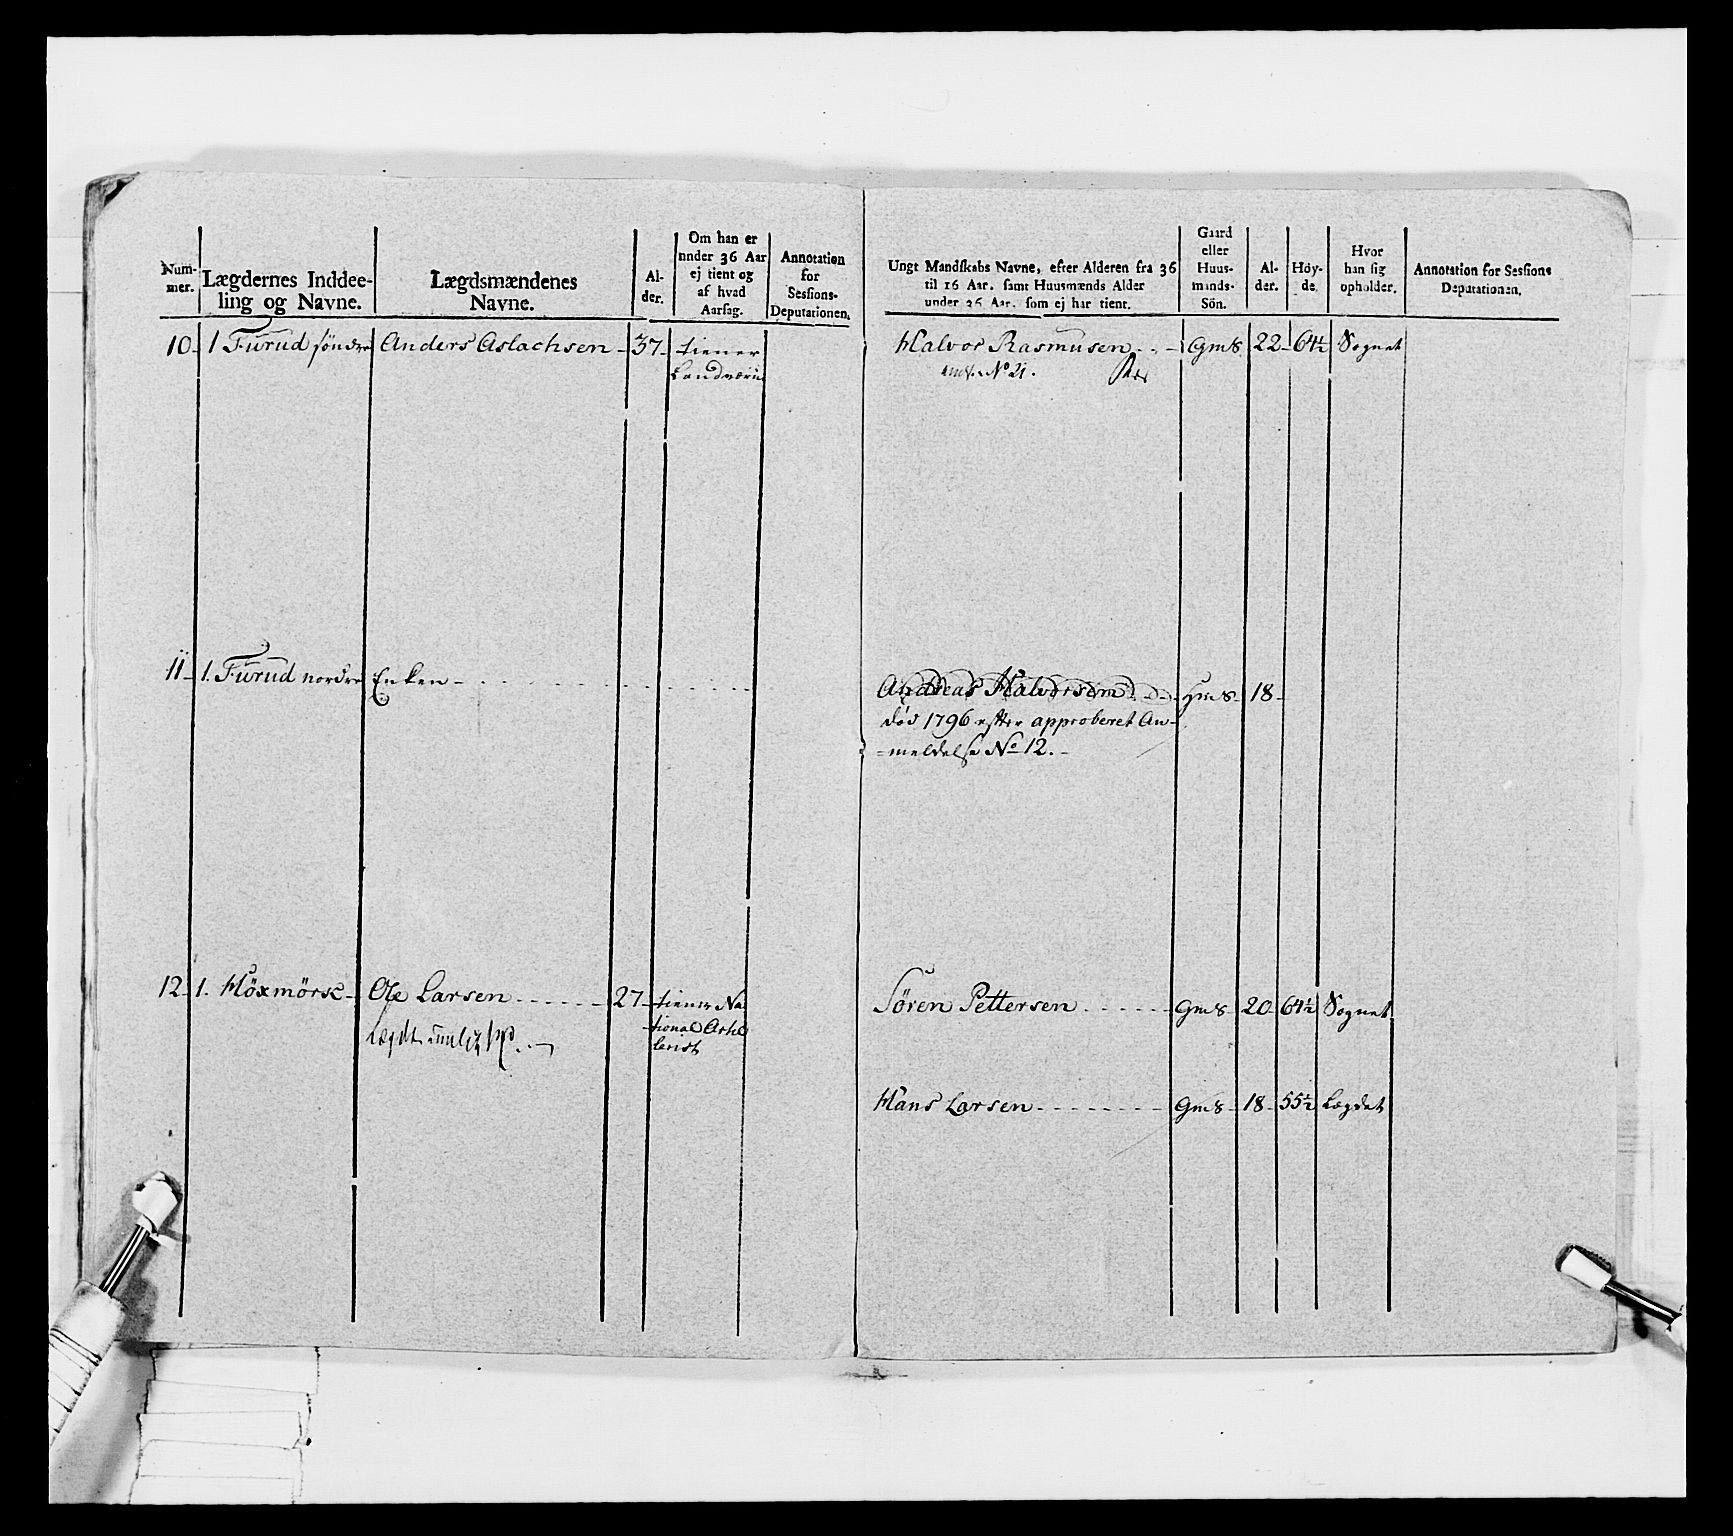 Num-
mer.
Lægdernes Inddee-
ling og Navne.
Lægdsmændenes
Navne.
Al-
der.
Om han er
under 36 Aar
ej tient og
af hvad
Aarsag.
Annotation
for
Sessions-
Deputationen.
Ungt Mandskabs Navne, efter Alderen fra 36
til 16 Aar, samt Huusmænds Alder
under 36 Aar, som ej har tient.
Gaard
eller
Huus-
mands-
Sön.
Al-
der.
Höy-
de.
Hvor
han sig
opholder.
Annotation for Sessions
Deputationen.
10 1 Furud söndre Anders Aslachsen 37 tiener
Landværn
Halvor Rasmusen Gm8 22 64½ Sognet
No 21.
11 1. Furud nordre Enken
Andreas Halvorsen Hm8 18
död 1796 efter approberet An-
=meldelse No 12.
12 1. Höxmörk Ole Larsen 27 tiener Na
tional
Sören Pettersen Gm8 20 64½ Sognet
Hans Larsen Gm8 18 55½ Lægdet